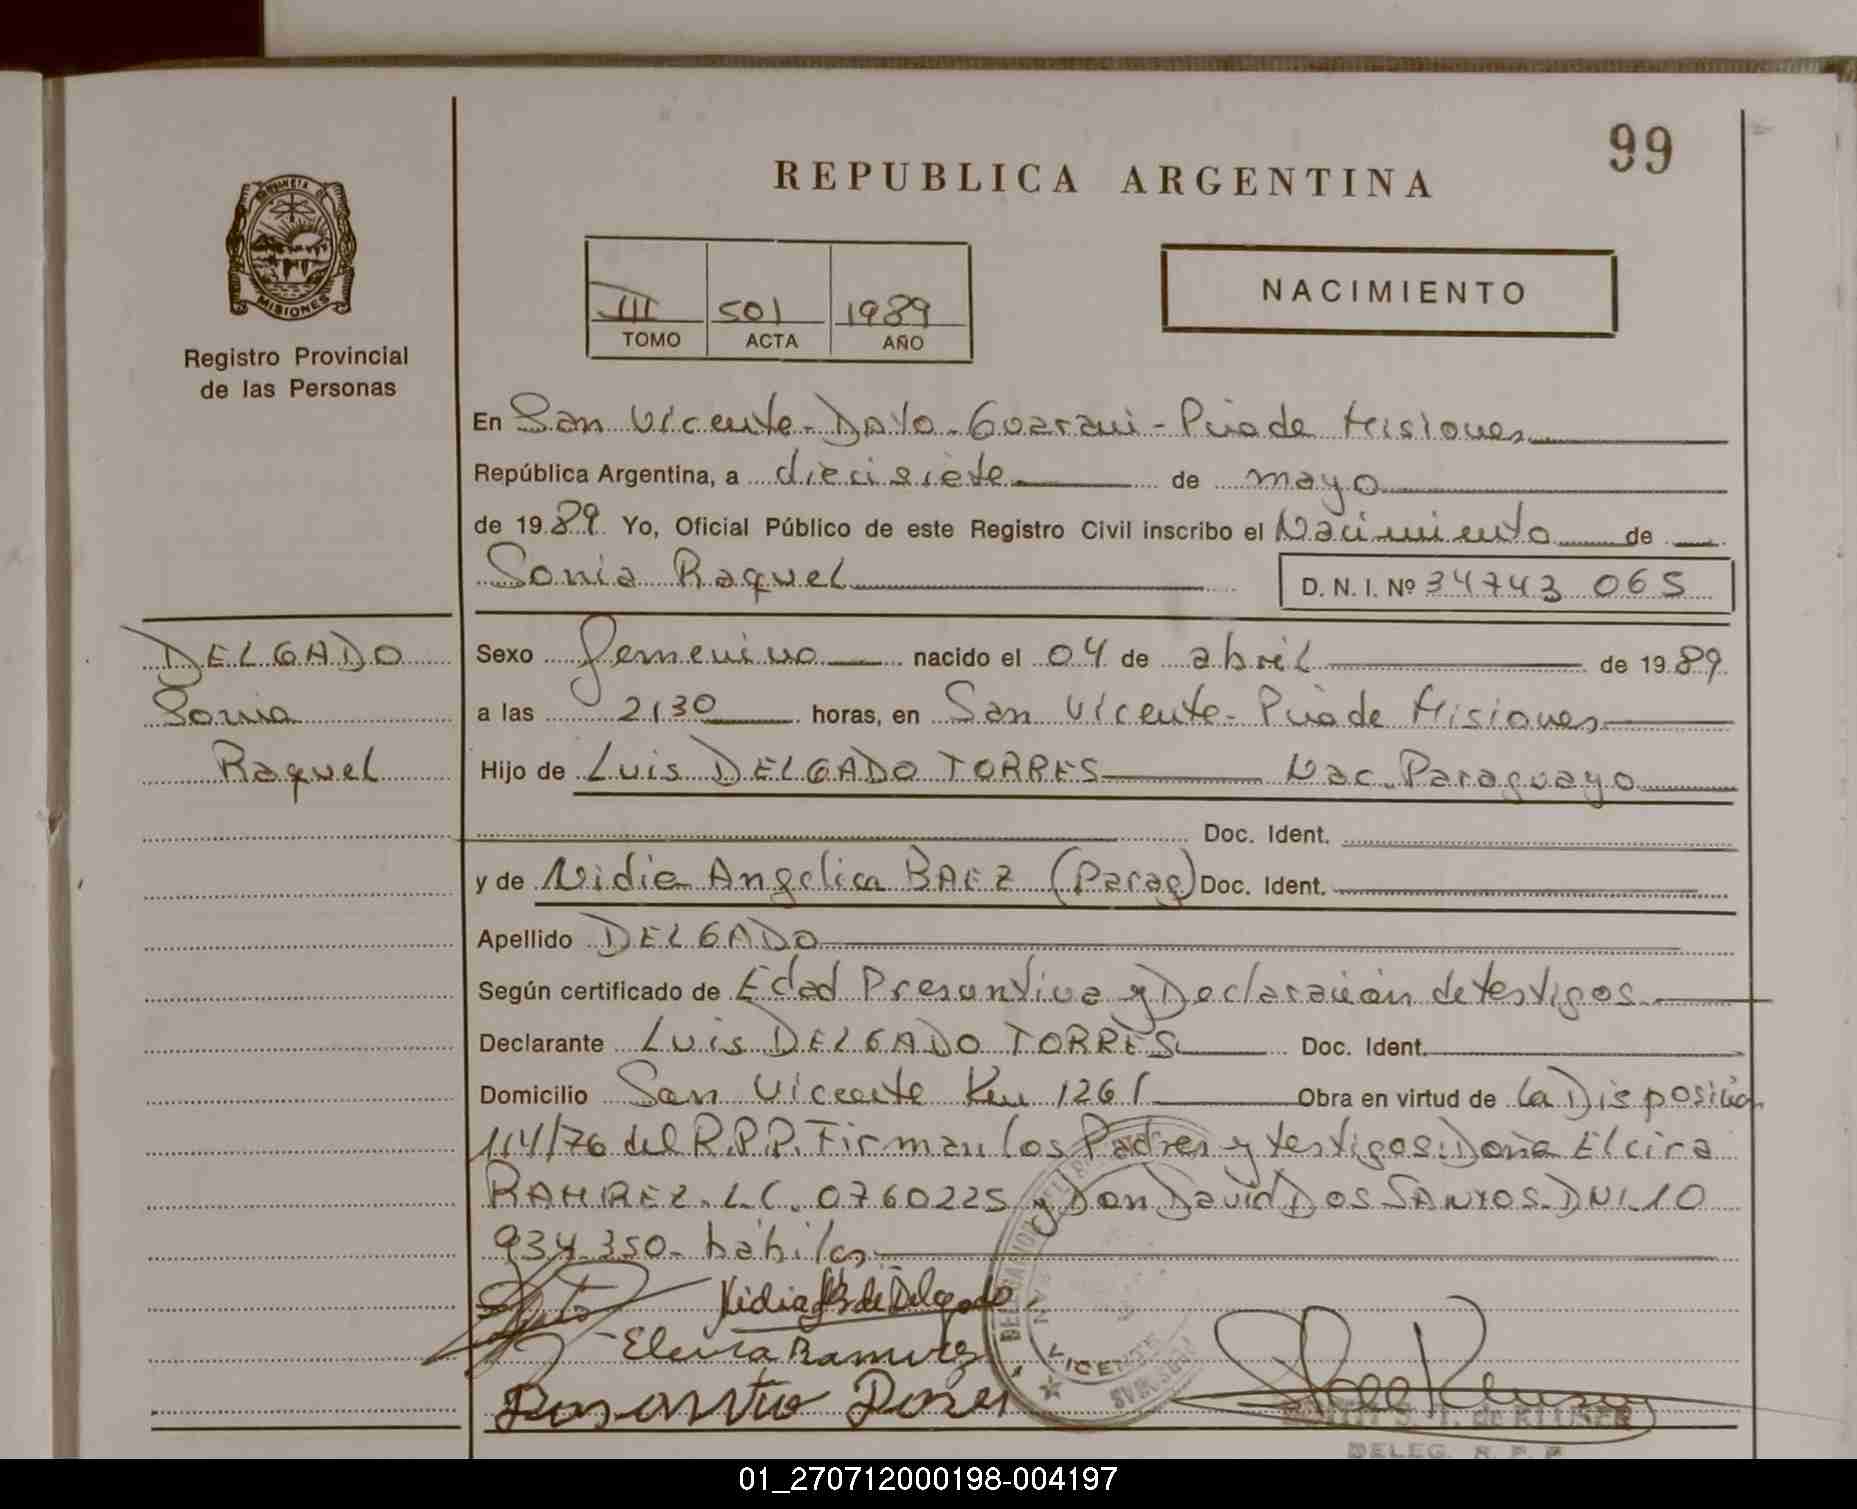 99
REPUBLICA ARGENTINA
MISIONES
Registro Provincial
de las Personas
III 501 1989
TOMO ACTA AÑO
NACIMIENTO
En San Vicente - Dpto. Guarani - Pcia de Misiones
República Argentina, a diecisiete de mayo
de 1989 Yo, Oficial Público de este Registro Civil inscribo el Nacimiento de
Sonia Raquel D. N. I. Nº 34743 065
DELGADO
Sonia
Raquel
Sexo femenino nacido el 04 de abril de 1989
a las 2130 horas, en San Vicente - Pcia de Misiones
Hijo de Luis DELGADO TORRES Nac. Paraguayo
Doc. Ident.
y de Nidia Angelica BAEZ (Parag) Doc. Ident.
Apellido DELGADO
Según certificado de Edad Presuntiva y Declaración de testigos
Declarante Luis DELGADO TORRES Doc. Ident.
Domicilio San Vicente Km 1261 Obra en virtud de la Disposición
114/76 del R.P.P. Firman los Padres y testigos: Doña Elcira
RAMIREZ - L.C. 0760225 y Don David DOS SANTOS - DNI. 10
934 350 - hábiles
Nidia B de Delgado
Elcira Ramirez
VICENTE
DELEG. R. P. P.
01_270712000198-004197